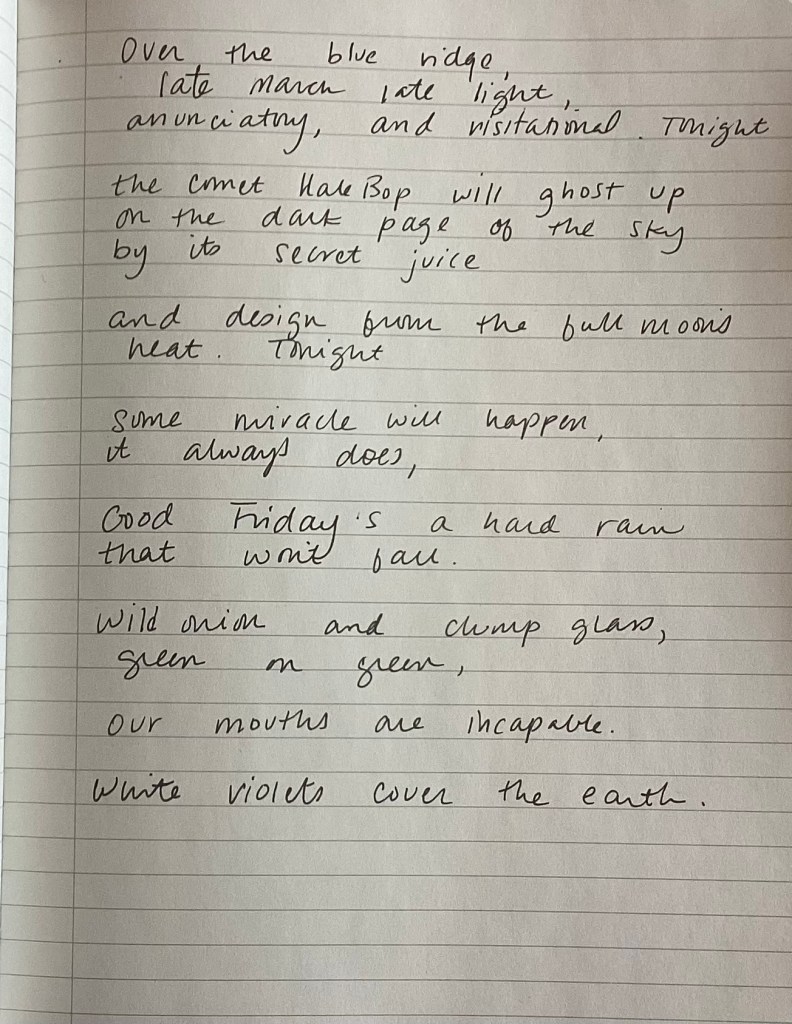 Over the blue ridge,
late march late light,
anunciatory, and visitational. Tonight
the comet Hale Bop will ghost up
on the dark page of the sky
by its secret juice
and design from the full moon's
heat. Tonight
some miracle will happen,
it always does,
Good Friday's a hard rain
that won't fall.
Wild onion and clump glass,
green on green,
our mouths are incapable.
White violets cover the earth.